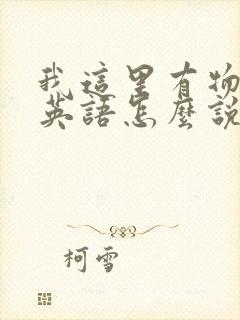 我這里有物
英語怎麼說
柯雪